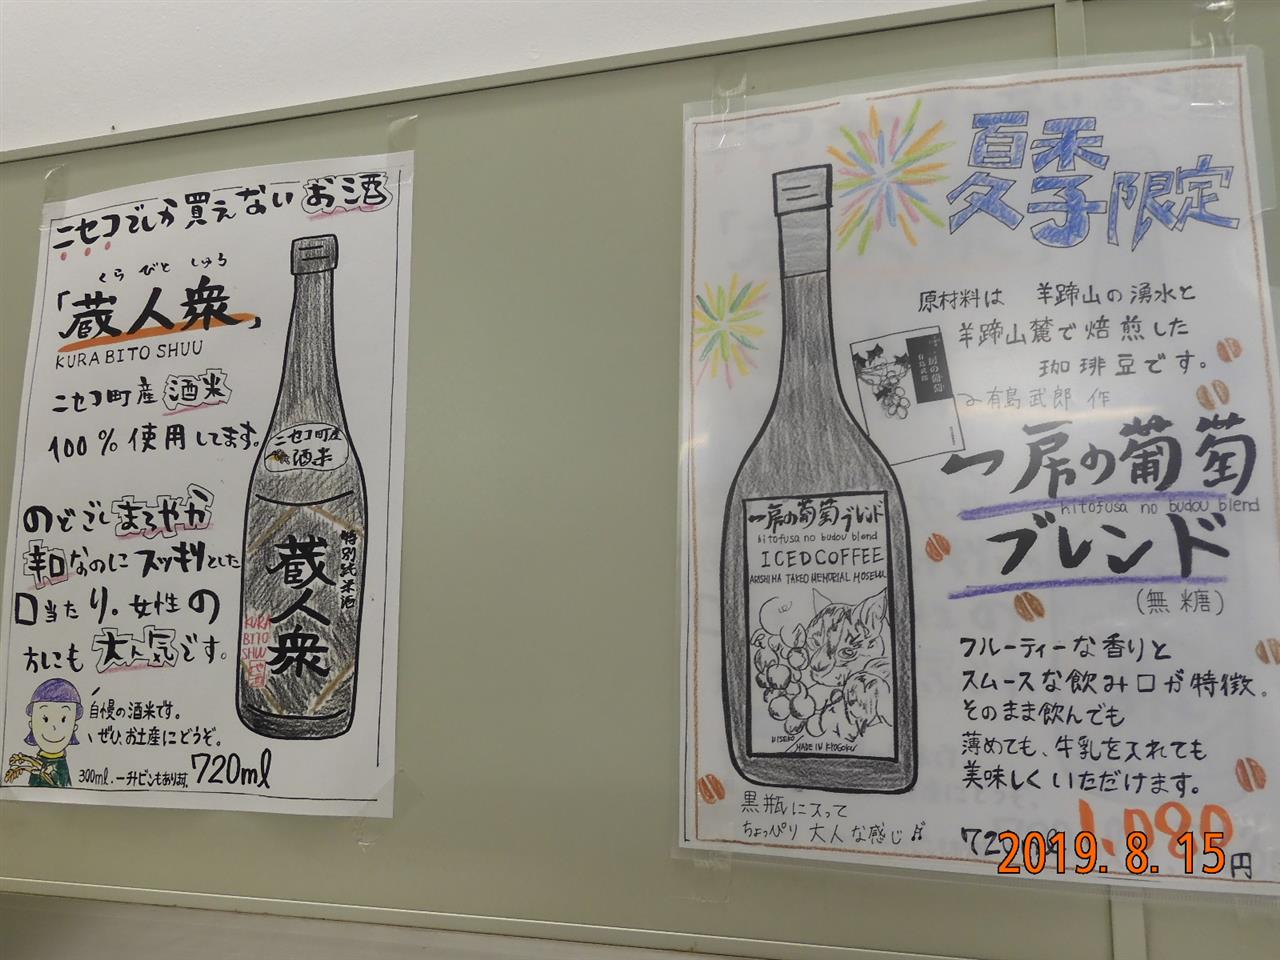 ニセコでしか買えないお酒
くらびとしゅう
「蔵人衆」
KURABITO SHUU
ニセコ町産酒米
100%使用してます。
のどごしまろやか
辛口なのにスッキリとした
口当たり。女性の
方にも大人気です。
自慢の酒米です。
ぜひ、お土産にどうぞ。
300ml、一升ビンもあります。
720ml
ニセコ町産
酒米
特別純米酒
蔵人衆
KURA
BITO
SHUU
夏季限定
原材料は 羊蹄山の湧水と
羊蹄山麓で焙煎した
珈琲豆です。
一房の葡萄
有島武郎
有島武郎 作
一房の葡萄
hitofusa no budou blend
ブレンド
(無糖)
フルーティーな香りと
スムースな飲み口が特徴。
そのまま飲んでも
薄めても、牛乳を入れても
美味しくいただけます。
一房の葡萄ブレンド
hitofusa no budou blend
ICED COFFEE
ARISHIMA TAKEO MEMORIAL MUSEUM
NISEKO
MADE IN KYOGOKU
黒瓶に入って
ちょっぴり大人な感じ♬
720ml
1,080円
2019. 8. 15